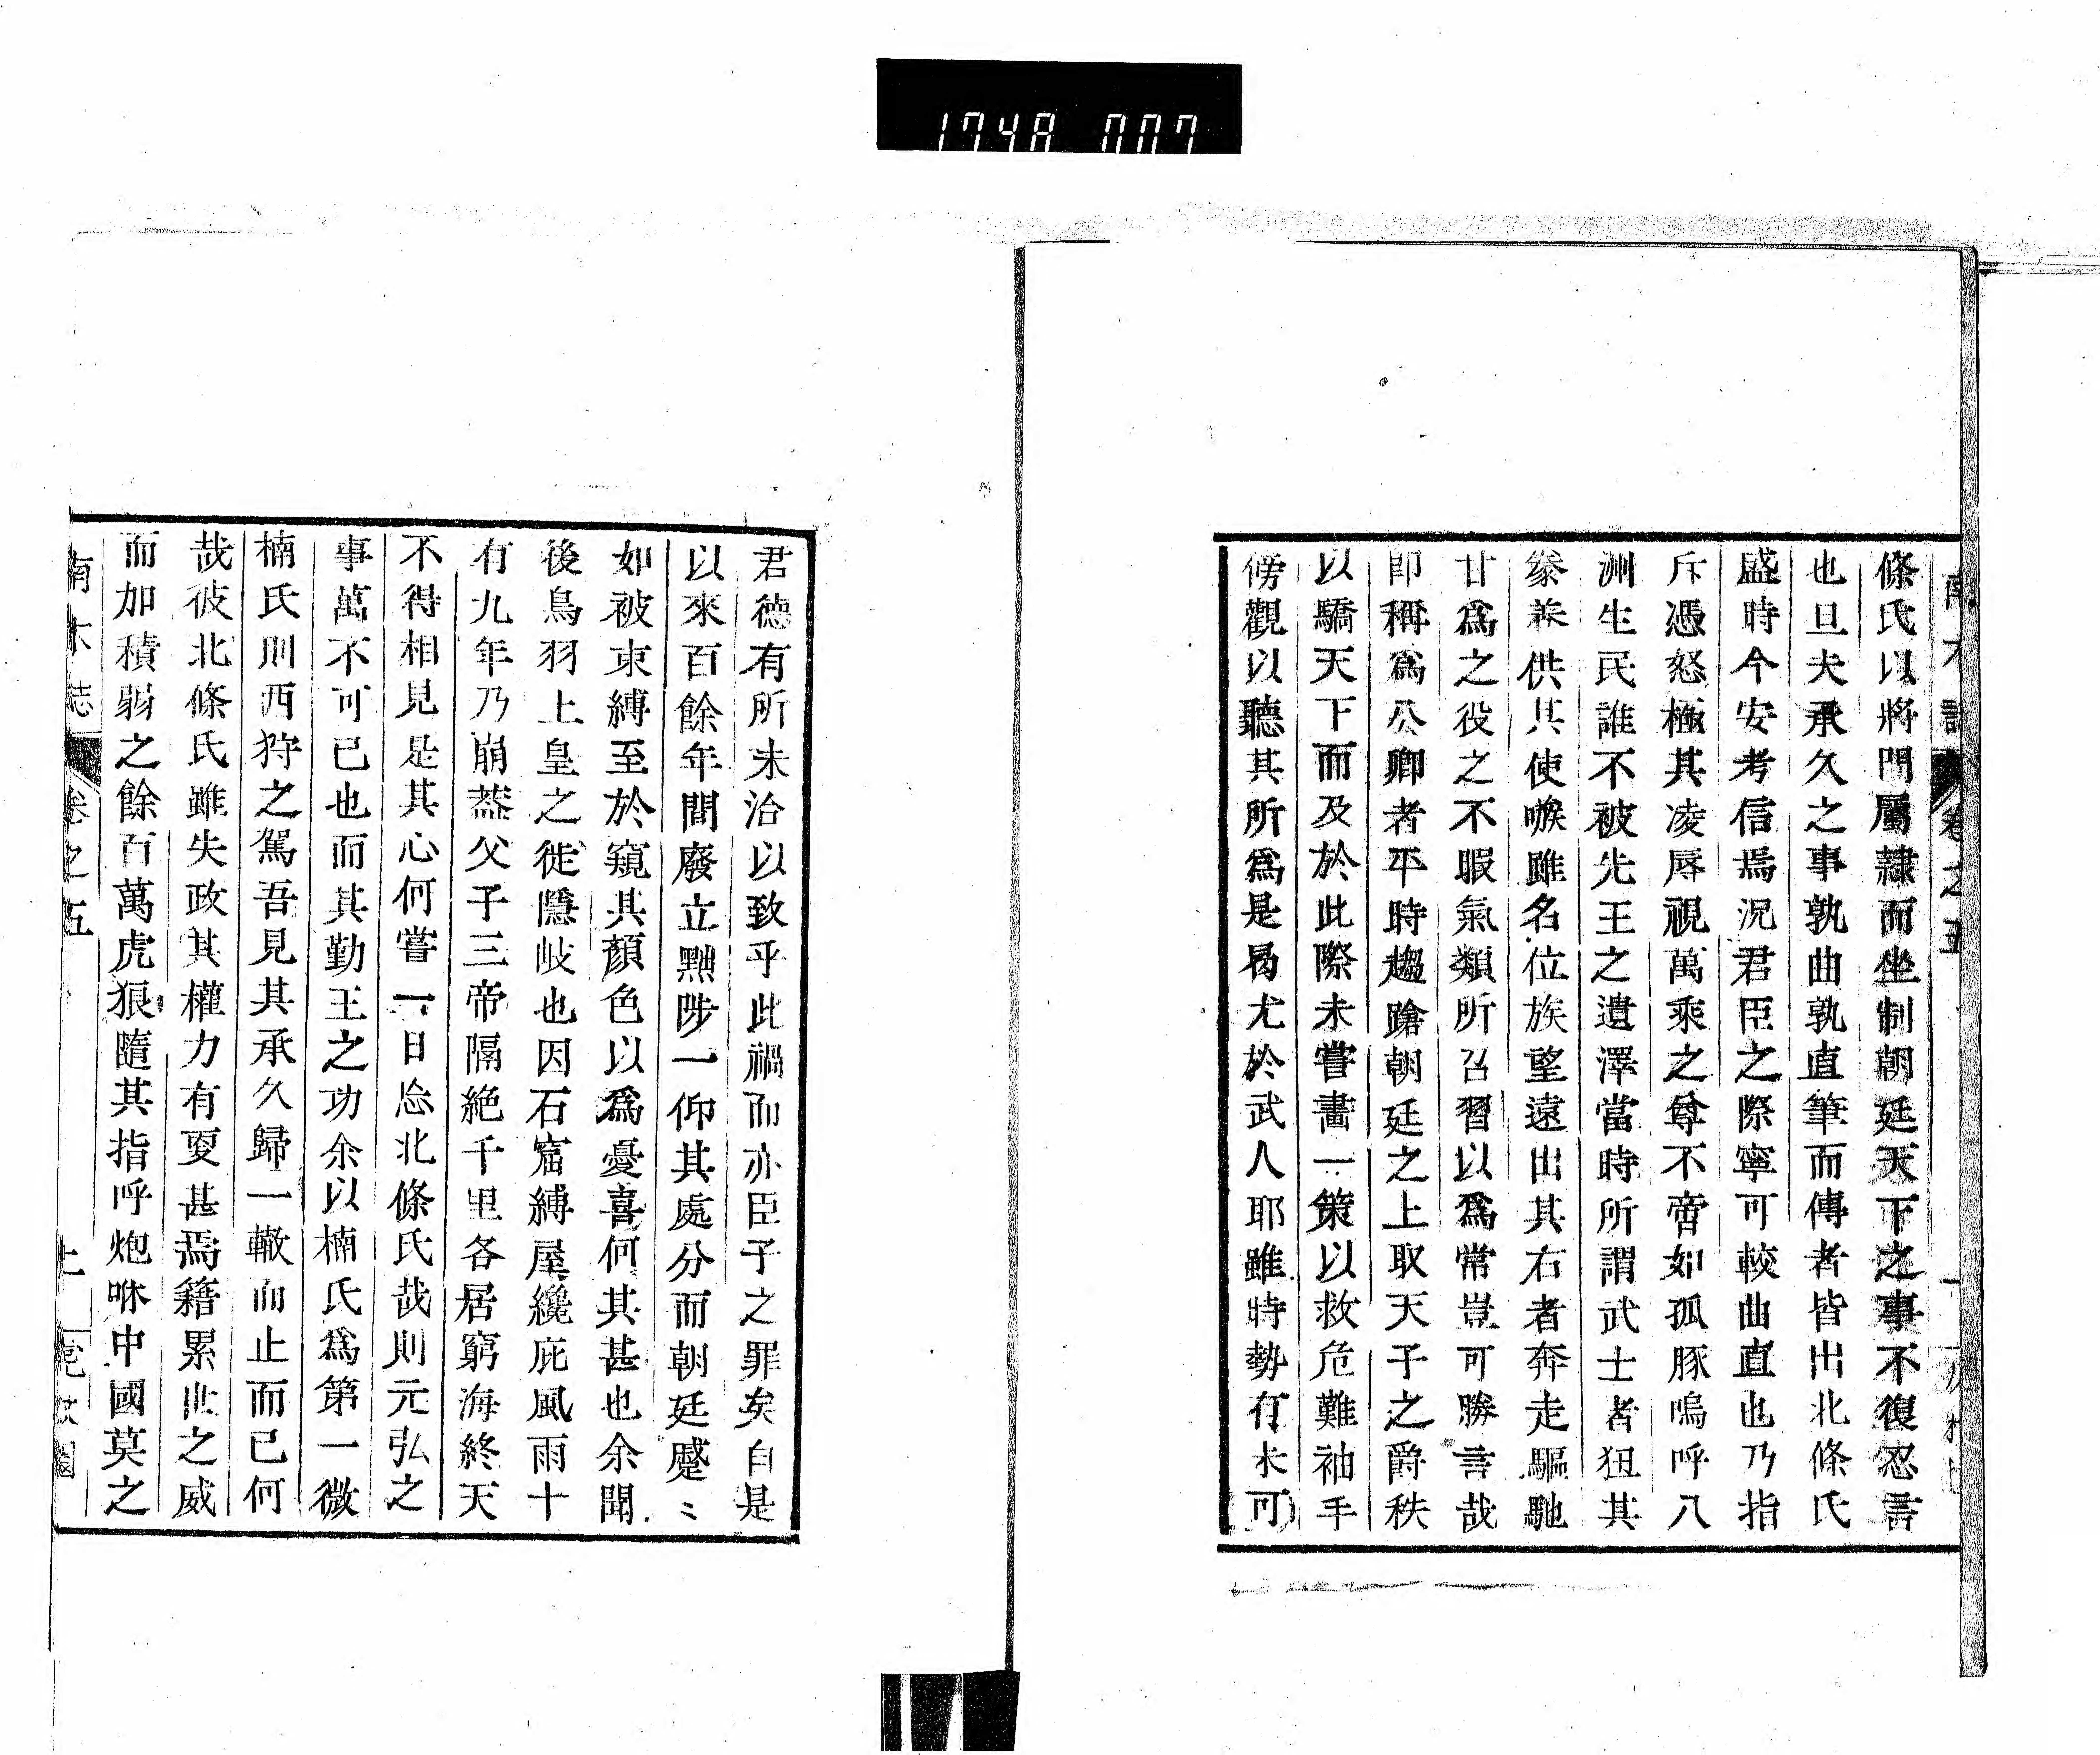 1748 007
條氏以將門屬隷而坐制朝廷天下之事不復忍言
也且夫承久之事孰曲孰直筆而傳者皆出北條氏
盛時今安考信焉況君臣之際寧可較曲直也乃指
斥憑怒極其凌辱視萬乘之尊不啻如孤豚嗚呼八
洲生民誰不被先王之遺澤當時所謂武士者狃其
豢養供其使嗾雖名位族望遠出其右者奔走驅馳
甘爲之役之不暇氣類所召習以爲常豈可勝言哉
即稱爲公卿者平時趨蹌朝廷之上取天子之爵秩
以驕天下而及於此際未嘗畫一策以救危難袖手
傍觀以聽其所爲是曷尤於武人耶雖時勢有未可
君德有所未洽以致乎此禍而亦臣子之罪矣自是
以來百餘年間廢立黜陟一仰其處分而朝廷蹙〻
如被束縛至於窺其顏色以爲憂喜何其甚也余聞
後鳥羽上皇之徙隱岐也因石窟縛屋纔庇風雨十
有九年乃崩葢父子三帝隔絶千里各居窮海終天
不得相見是其心何嘗一日忘北條氏哉則元弘之
事萬不可已也而其勤王之功余以楠氏爲第一微
楠氏則西狩之駕吾見其承久歸一轍而止而已何
哉彼北條氏雖失政其權力有更甚焉籍累世之威
而加積弱之餘百萬虎狼隨其指呼炮咻中國莫之
南木志 卷之五